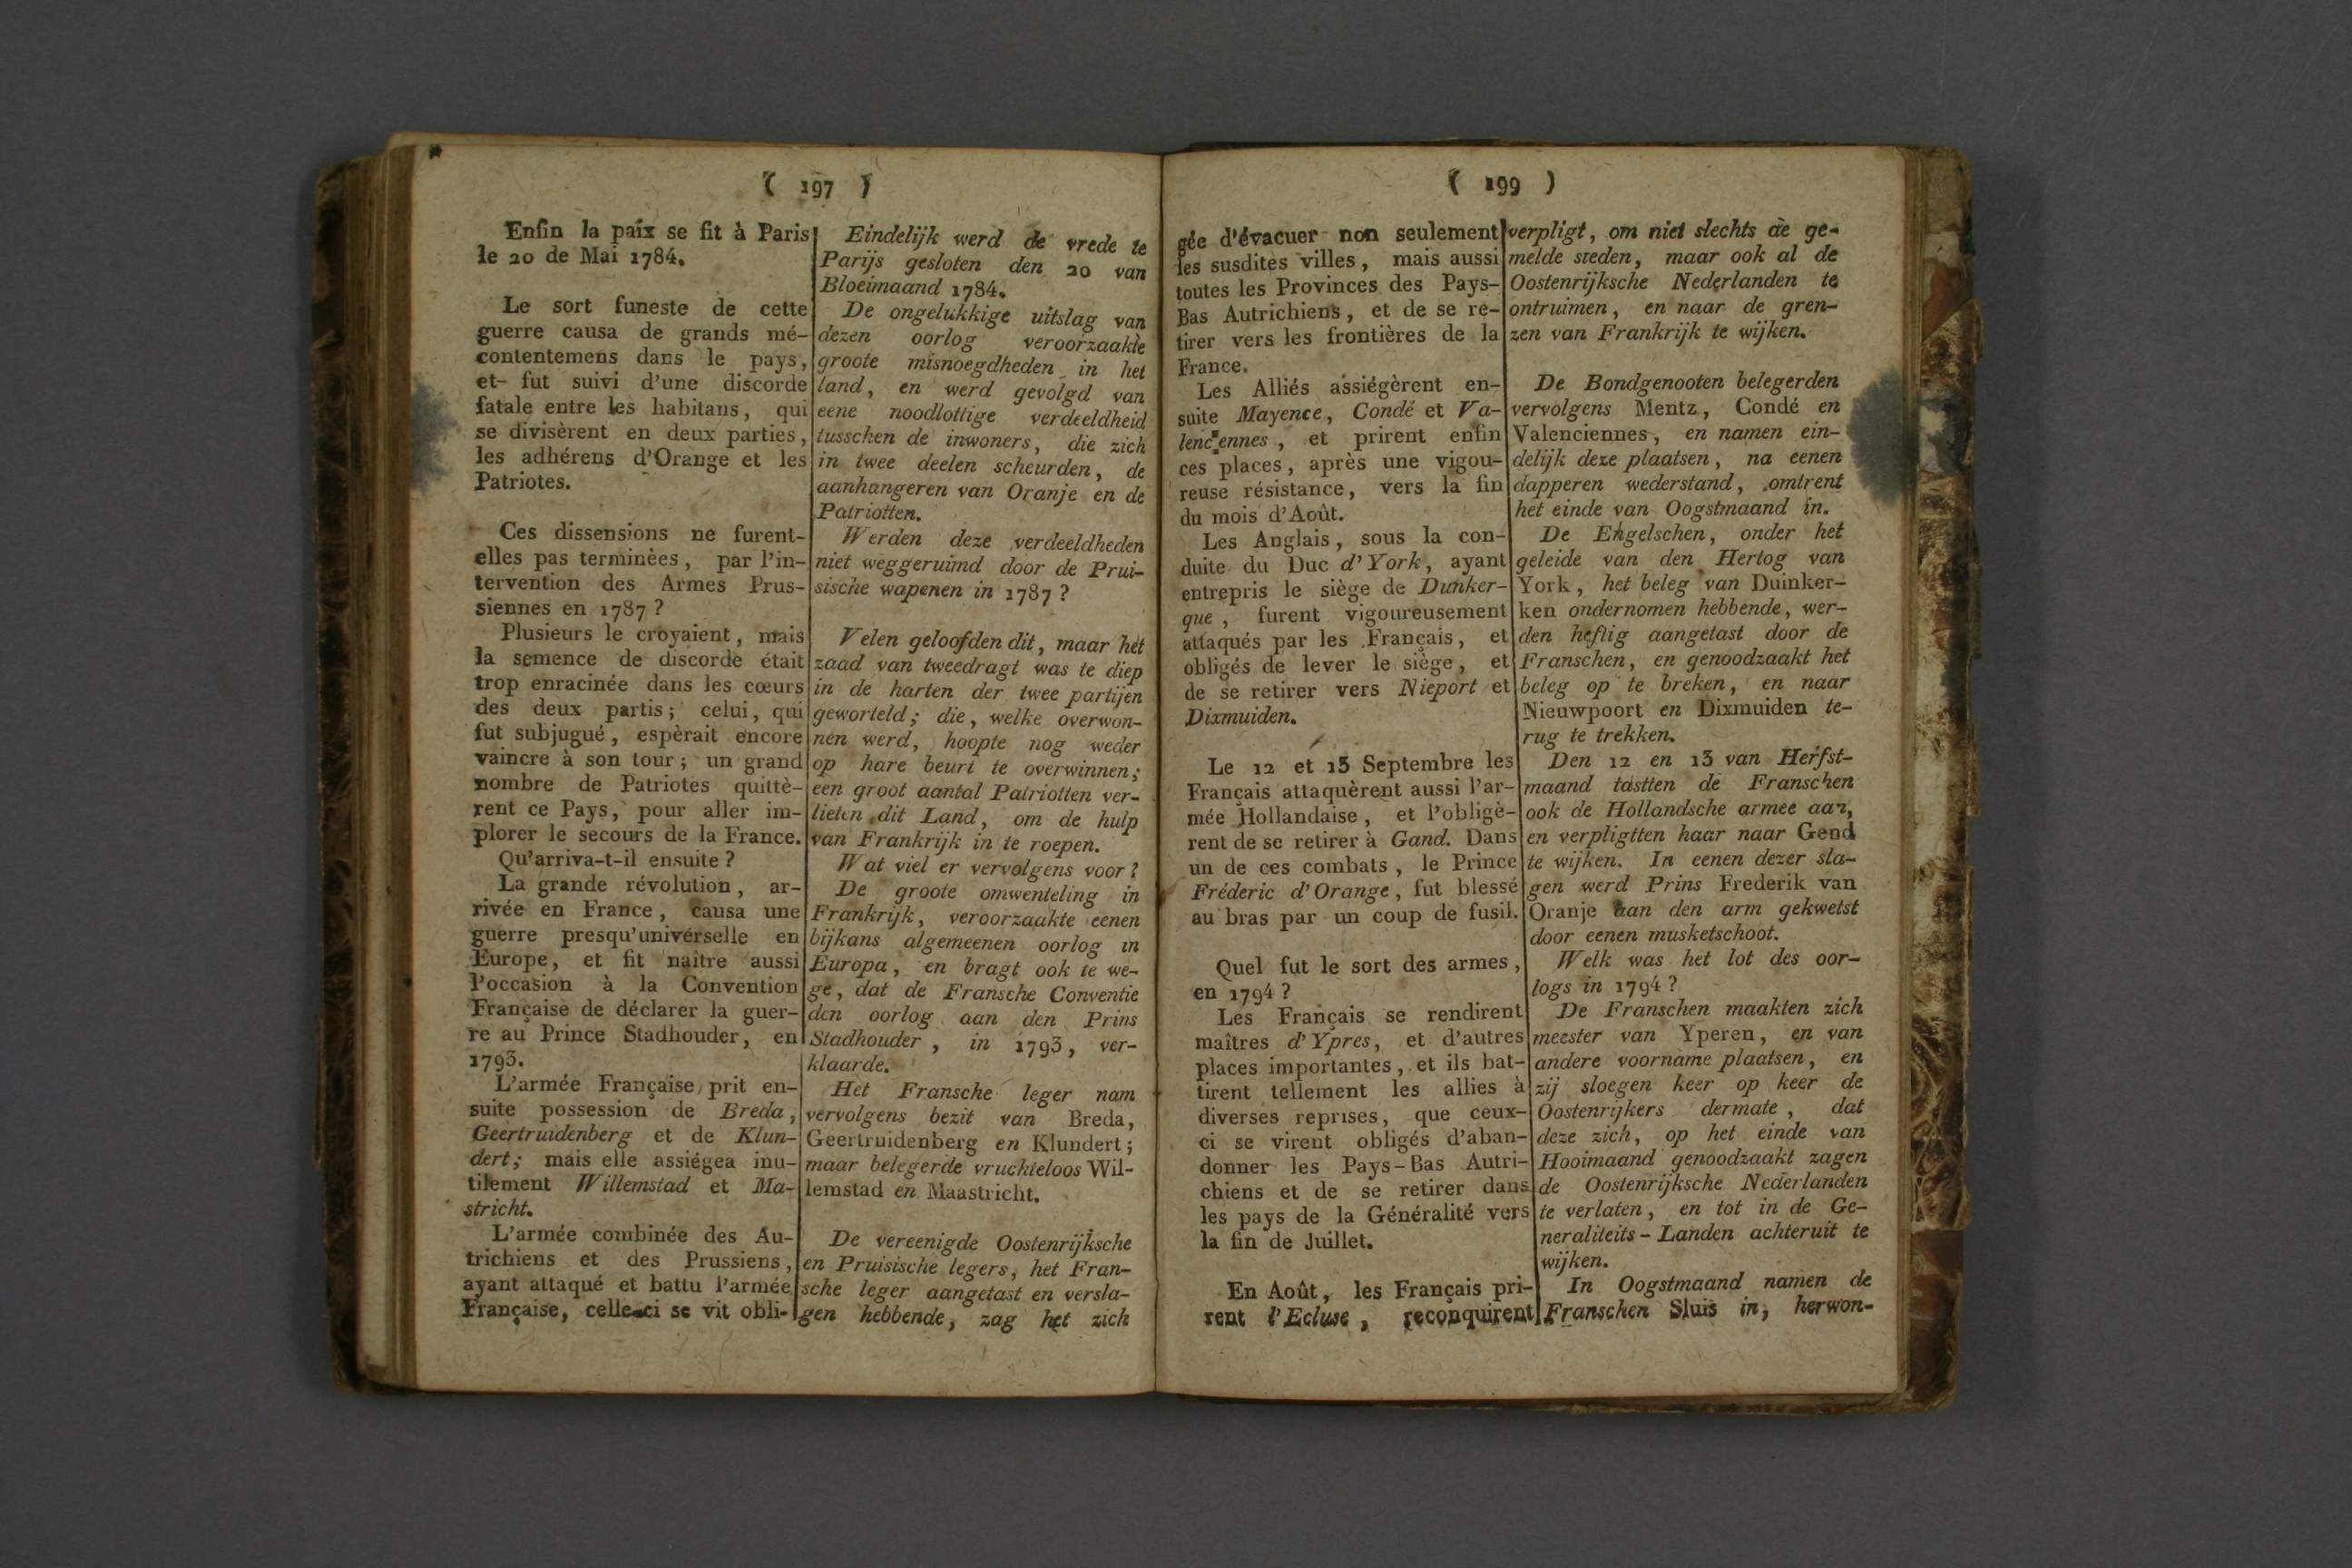 ( 197 )
Enfin la paix se fit à Paris
le 20 de Mai 1784.
Le sort funeste de cette
guerre causa de grands mé-
contentemens dans le pays,
et fut suivi d'une discorde
fatale entre les habitans, qui
se divisèrent en deux parties,
les adhérens d'Orange et les
Patriotes.
Ces dissensions ne furent-
elles pas terminèes, par l'in-
tervention des Armes Prus-
siennes en 1787 ?
Plusieurs le croyaient, mais
la semence de discorde était
trop enracinée dans les cœurs
des deux partis; celui, qui
fut subjugué, espèrait encore
vaincre à son tour; un grand
nombre de Patriotes quittè-
rent ce Pays, pour aller im-
plorer le secours de la France.
Qu'arriva-t-il ensuite ?
La grande révolution, ar-
rivée en France, causa une
guerre presqu'universelle en
Europe, et fit naître aussi
l'occasion à la Convention
Française de déclarer la guer-
re au Prince Stadhouder, en
1793.
L'armée Française prit en-
suite possession de Breda,
Geertruidenberg et de Klun-
dert; mais elle assiégea inu-
tilement Willemstad et Ma-
stricht.
L'armée combinée des Au-
trichiens et des Prussiens,
ayant attaqué et battu l'armée
Française, celle-ci se vit obli-
Eindelijk werd de vrede te
Parijs gesloten den 20 van
Bloeimaand 1784.
De ongelukkige uitslag van
dezen oorlog veroorzaakte
groote misnoegdheden in het
land, en werd gevolgd van
eene noodlottige verdeeldheid
tusschen de inwoners, die zich
in twee deelen scheurden, de
aanhangeren van Oranje en de
Patriotten.
Werden deze verdeeldheden
niet weggeruimd door de Prui-
sische wapenen in 1787 ?
Velen geloofden dit, maar het
zaad van tweedragt was te diep
in de harten der twee partijen
geworteld; die, welke overwon-
nen werd, hoopte nog weder
op hare beurt te overwinnen;
een groot aantal Patriotten ver-
lieten dit Land, om de hulp
van Frankrijk in te roepen.
Wat viel er vervolgens voor ?
De groote omwenteling in
Frankrijk, veroorzaakte eenen
bijkans algemeenen oorlog in
Europa, en bragt ook te we-
ge, dat de Fransche Conventie
den oorlog aan den Prins
Stadhouder, in 1793, ver-
klaarde.
Het Fransche leger nam
vervolgens bezit van Breda,
Geertruidenberg en Klundert;
maar belegerde vruchteloos Wil-
lemstad en Maastricht.
De vereenigde Oostenrijksche
en Pruisische legers, het Fran-
sche leger aangetast en versla-
gen hebbende, zag het zich
( 199 )
gée d'évacuer non seulement
les susdites villes, mais aussi
toutes les Provinces des Pays-
Bas Autrichiens, et de se re-
tirer vers les frontières de la
France.
Les Alliés assiégèrent en-
suite Mayence, Condé et Va-
lenciennes, et prirent enfin
ces places, après une vigou-
reuse résistance, vers la fin
du mois d'Août.
Les Anglais, sous la con-
duite du Duc d'York, ayant
entrepris le siège de Dunker-
que, furent vigoureusement
attaqués par les Français, et
obligés de lever le siège, et
de se retirer vers Nieport et
Dixmuiden.
Le 12 et 13 Septembre les
Français attaquèrent aussi l'ar-
mée Hollandaise, et l'obligè-
rent de se retirer à Gand. Dans
un de ces combats, le Prince
Fréderic d'Orange, fut blessé
au bras par un coup de fusil.
Quel fut le sort des armes,
en 1794 ?
Les Français se rendirent
maîtres d'Ypres, et d'autres
places importantes, et ils bat-
tirent tellement les allies à
diverses reprises, que ceux-
ci se virent obligés d'aban-
donner les Pays-Bas Autri-
chiens et de se retirer dans
les pays de la Généralité vers
la fin de Juillet.
En Août, les Français pri-
rent l'Ecluse, reconquirent
verpligt, om niet slechts de ge-
melde steden, maar ook al de
Oostenrijksche Nederlanden te
ontruimen, en naar de gren-
zen van Frankrijk te wijken.
De Bondgenooten belegerden
vervolgens Mentz, Condé en
Valenciennes, en namen ein-
delijk deze plaatsen, na eenen
dapperen wederstand, omtrent
het einde van Oogstmaand in.
De Engelschen, onder het
geleide van den Hertog van
York, het beleg van Duinker-
ken ondernomen hebbende, wer-
den heftig aangetast door de
Franschen, en genoodzaakt het
beleg op te breken, en naar
Nieuwpoort en Dixmuiden te-
rug te trekken.
Den 12 en 13 van Herfst-
maand tastten de Franschen
ook de Hollandsche armee aan,
en verpligtten haar naar Gend
te wijken. In eenen dezer sla-
gen werd Prins Frederik van
Oranje aan den arm gekwetst
door eenen musketschoot.
Welk was het lot des oor-
logs in 1794 ?
De Franschen maakten zich
meester van Yperen, en van
andere voorname plaatsen, en
zij sloegen keer op keer de
Oostenrijkers dermate, dat
deze zich, op het einde van
Hooimaand genoodzaakt zagen
de Oostenrijksche Nederlanden
te verlaten, en tot in de Ge-
neraliteits-Landen achteruit te
wijken.
In Oogstmaand namen de
Franschen Sluis in, herwon-